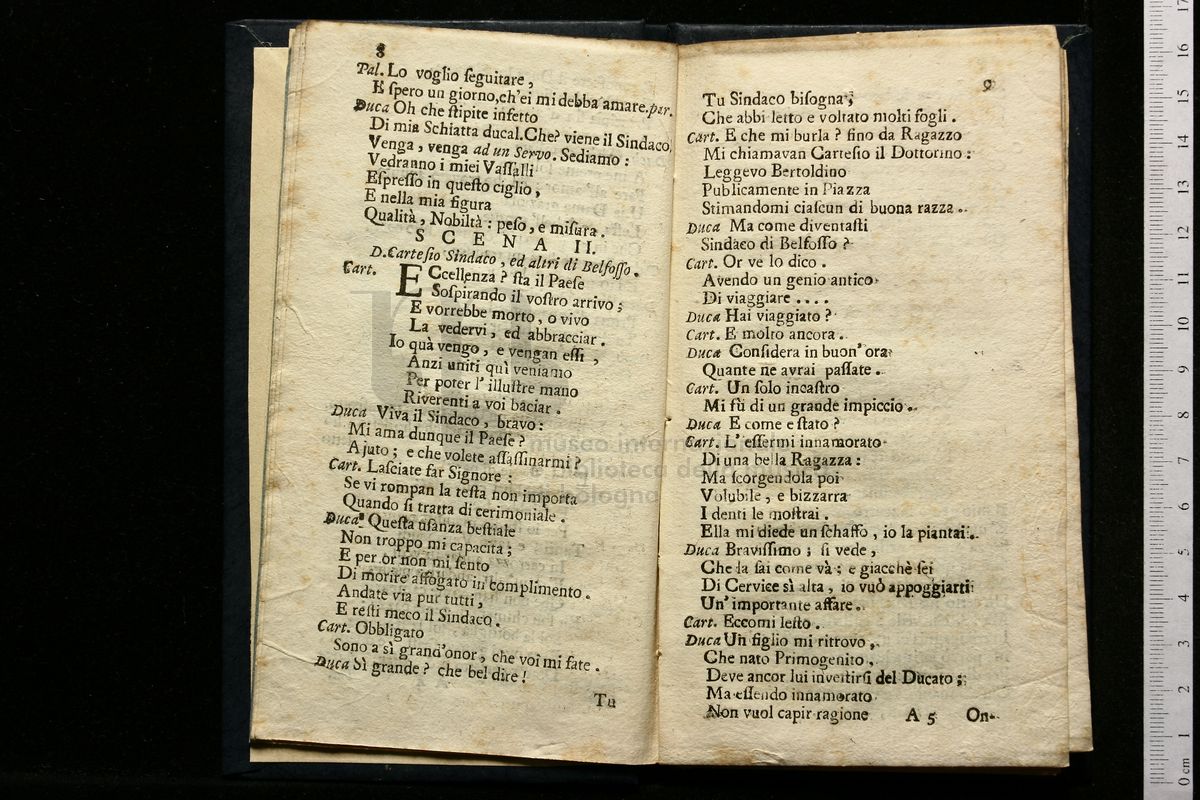 8
Pal. Lo voglio ſeguitare,
E ſpero un giorno, ch'ei mi debba amare. par.
Duca Oh che ſtipite infetto
Di mia Schiatta ducal. Che? viene il Sindaco,
Venga, venga ad un Servo. Sediamo:
Vedranno i miei Vaſſalli
Eſpreſſo in queſto ciglio,
E nella mia figura
Qualità, Nobiltà: peſo, e miſura.
SCENA II.
D. Carteſio Sindaco, ed altri di Belfoſſo.
Cart. ECcellenza? ſta il Paeſe
Soſpirando il voſtro arrivo;
E vorrebbe morto, o vivo
La vedervi, ed abbracciar.
Io quà vengo, e vengan eſſi,
Anzi uniti quì veniamo
Per poter l'illuſtre mano
Riverenti a voi baciar.
Duca Viva il Sindaco, bravo:
Mi ama dunque il Paeſe?
Ajuto; e che volete aſſaſſinarmi?
Cart. Laſciate far Signore:
Se vi rompan la teſta non importa
Quando ſi tratta di cerimoniale.
Duca Queſta uſanza beſtiale
Non troppo mi capacita;
E per or non mi ſento
Di morire affogato in complimento.
Andate via pur tutti,
E reſti meco il Sindaco.
Cart. Obbligato
Sono a sì grand'onor, che voi mi fate.
Duca Sì grande? che bel dire!
Tu
9
Tu Sindaco biſogna;
Che abbi letto e voltato molti fogli.
Cart. E che mi burla? fino da Ragazzo
Mi chiamavan Carteſio il Dottorino:
Leggevo Bertoldino
Publicamente in Piazza
Stimandomi ciaſcun di buona razza.
Duca Ma come diventaſti
Sindaco di Belfoſſo?
Cart. Or ve lo dico.
Avendo un genio antico
Di viaggiare....
Duca Hai viaggiato?
Cart. E molto ancora.
Duca Conſidera in buon' ora
Quante ne avrai paſſate.
Cart. Un ſolo incaſtro
Mi fù di un grande impiccio.
Duca E come e ſtato?
Cart. L' eſſermi innamorato
Di una bella Ragazza:
Ma ſcorgendola poi
Volubile, e bizzarra
I denti le moſtrai.
Ella mi diede un ſchaffo, io la piantai.
Duca Braviſſimo; ſi vede,
Che la ſai come và; e giacchè ſei
Di Cervice sì alta, io vuò appoggiarti
Un' importante affare.
Cart. Eccomi leſto.
Duca Un figlio mi ritrovo,
Che nato Primogenito,
Deve ancor lui inveſtirſi del Ducato;
Ma eſſendo innamorato
Non vuol capir ragione
A 5 On-
museo internazionale
e biblioteca della musica
di bologna
0 cm 1 2 3 4 5 6 7 8 9 10 11 12 13 14 15 16 17